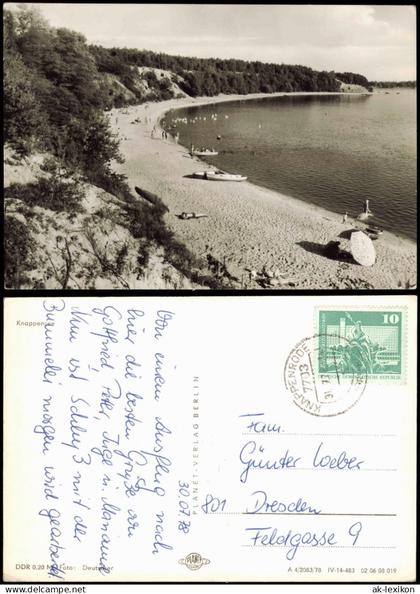 Knappensee
30.07.78
Von einem Ausflug nach
hier die besten Grüße an
Gottfried, Peter, Inge u. Mariane
Nun ist Schluß mit der
Bummelei morgen wird gearbeitet
PLANET-VERLAG BERLIN
DDR 0,20 M Foto: Deutscher
PLANET
KNAPPENRODE
7713
10
DEUTSCHE DEMOKRATISCHE REPUBLIK
Fam.
Günter Weber
801 Dresden
Feldgasse 9
A 4/2083/78 IV-14-483 02 06 08 019
© ak-lexikon
ak-lexikon.de